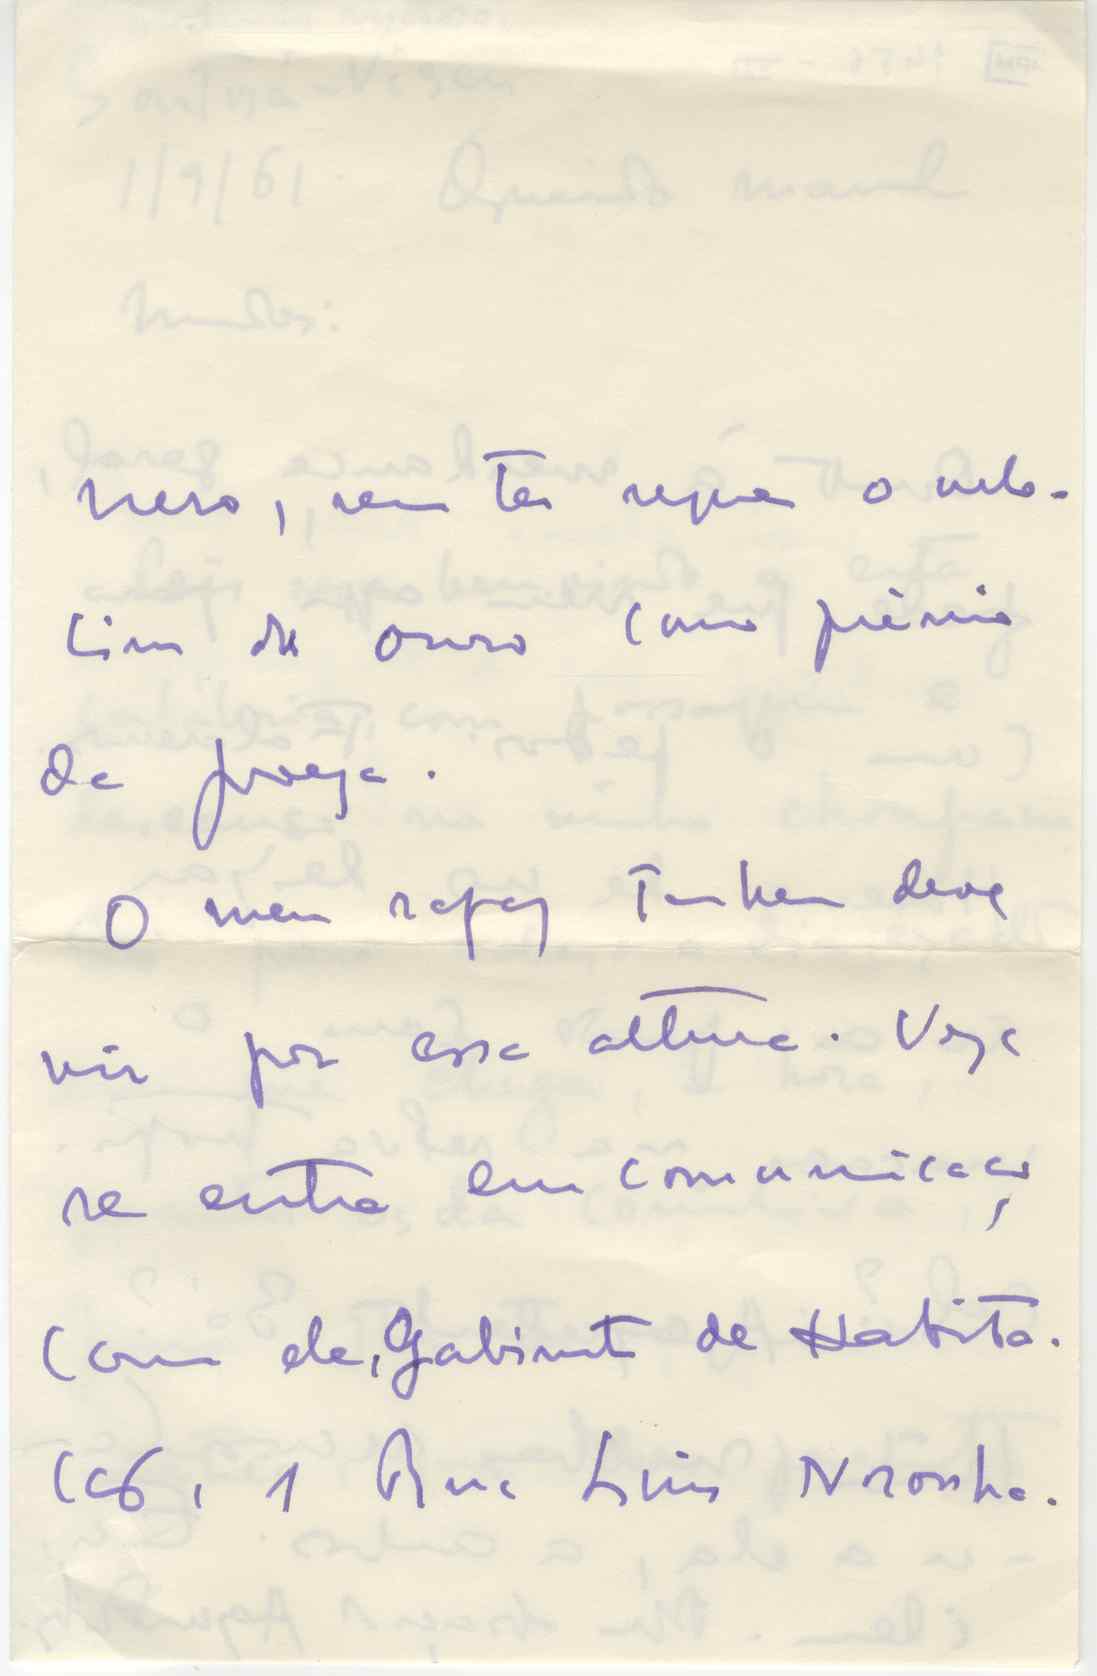 nero, sem ter sequer o velo-
cino de ouro como prémio
da proeza.
O meu rapaz também deve
vir por essa altura. Veja
se entra em comunicação
com ele, Gabinete de Habita-
ção, 1 Rua Luís Noronha.